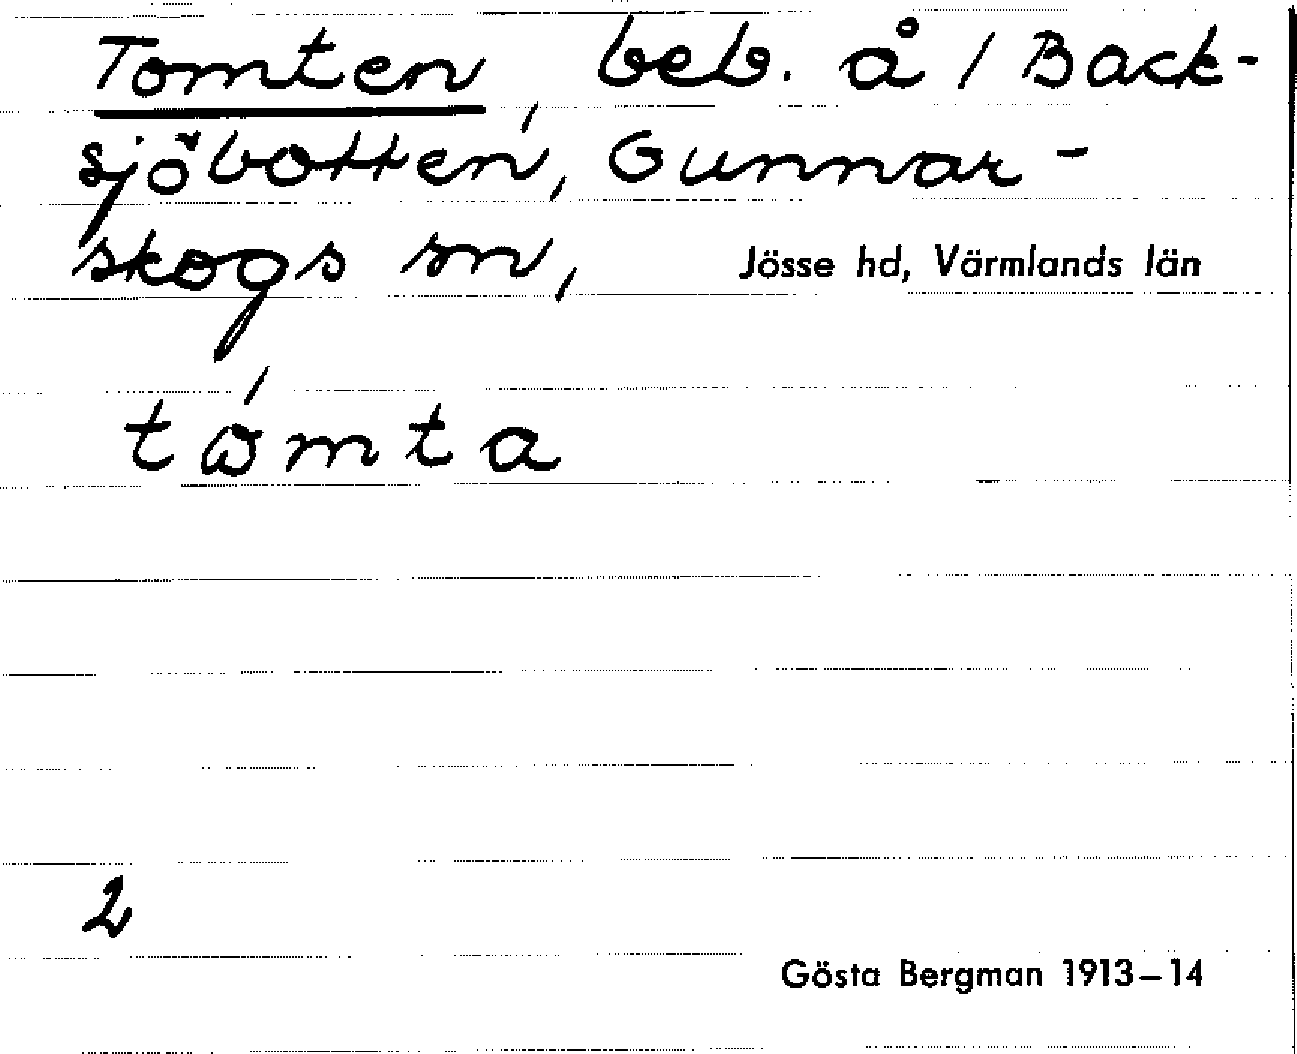 Tomten, beb. å / Back-
sjöbotten, Gunnar-
skogs sn, Jösse hd, Värmlands län
tómta
2
Gösta Bergman 1913–14